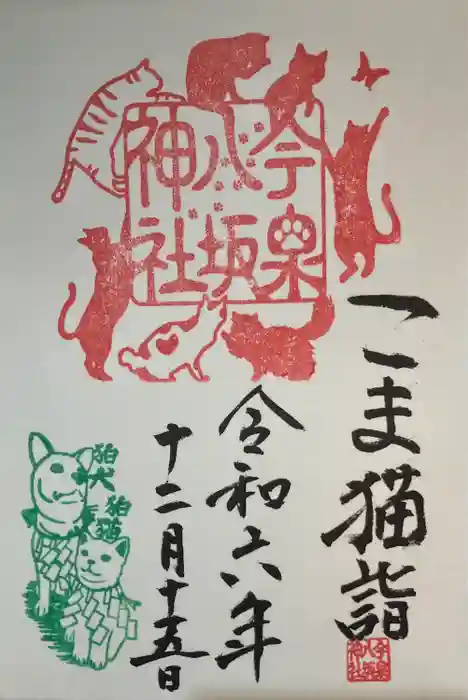 今泉
八坂
神社
こま猫詣
令和六年
十二月十五日
狛犬
狛猫
今泉
八坂
神社